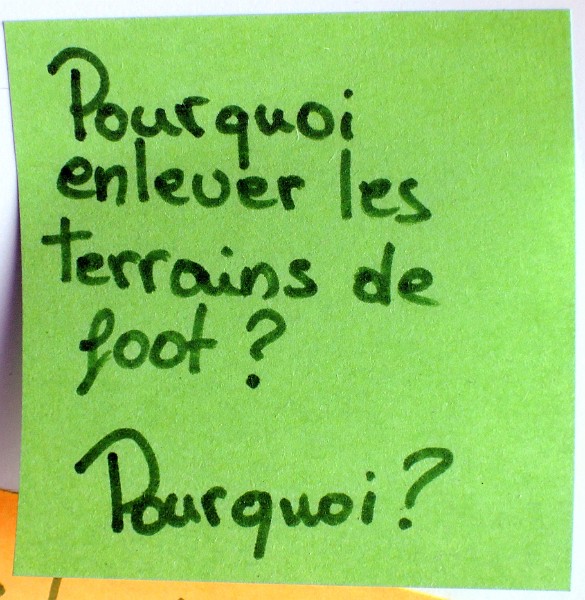 Pourquoi
enlever les
terrains de
foot ?
Pourquoi ?